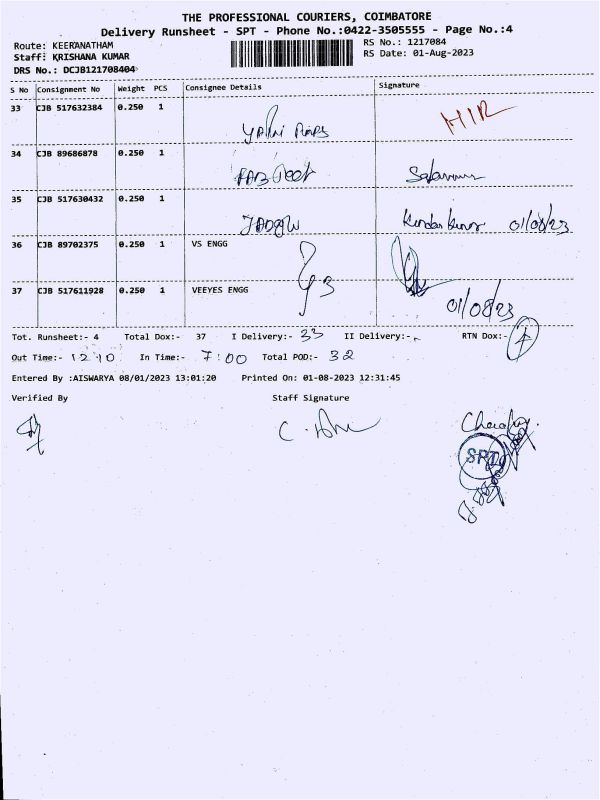 THE PROFESSIONAL COURIERS, COIMBATORE
Delivery Runsheet - SPT - Phone No.:0422-3505555 - Page No.:4
Route: KEERANATHAM RS No.: 1217084
Staff: KRISHANA KUMAR RS Date: 01-Aug-2023
DRS No.: DCJB121708404
S No Consignment No Weight PCS Consignee Details Signature
33 CJB 517632384 0.250 1
34 CJB 89686878 0.250 1
35 CJB 517630432 0.250 1
01/08/23
36 CJB 89702375 0.250 1 VS ENGG
37 CJB 517611928 0.250 1 VEEYES ENGG
01/08/23
Tot. Runsheet:- 4 Total Dox:- 37 I Delivery:- 33 II Delivery:- RTN Dox:-
Out Time:- 12 10 In Time:- 7:00 Total POD:- 32
Entered By :AISWARYA 08/01/2023 13:01:20 Printed On: 01-08-2023 12:31:45
Verified By Staff Signature
SPT